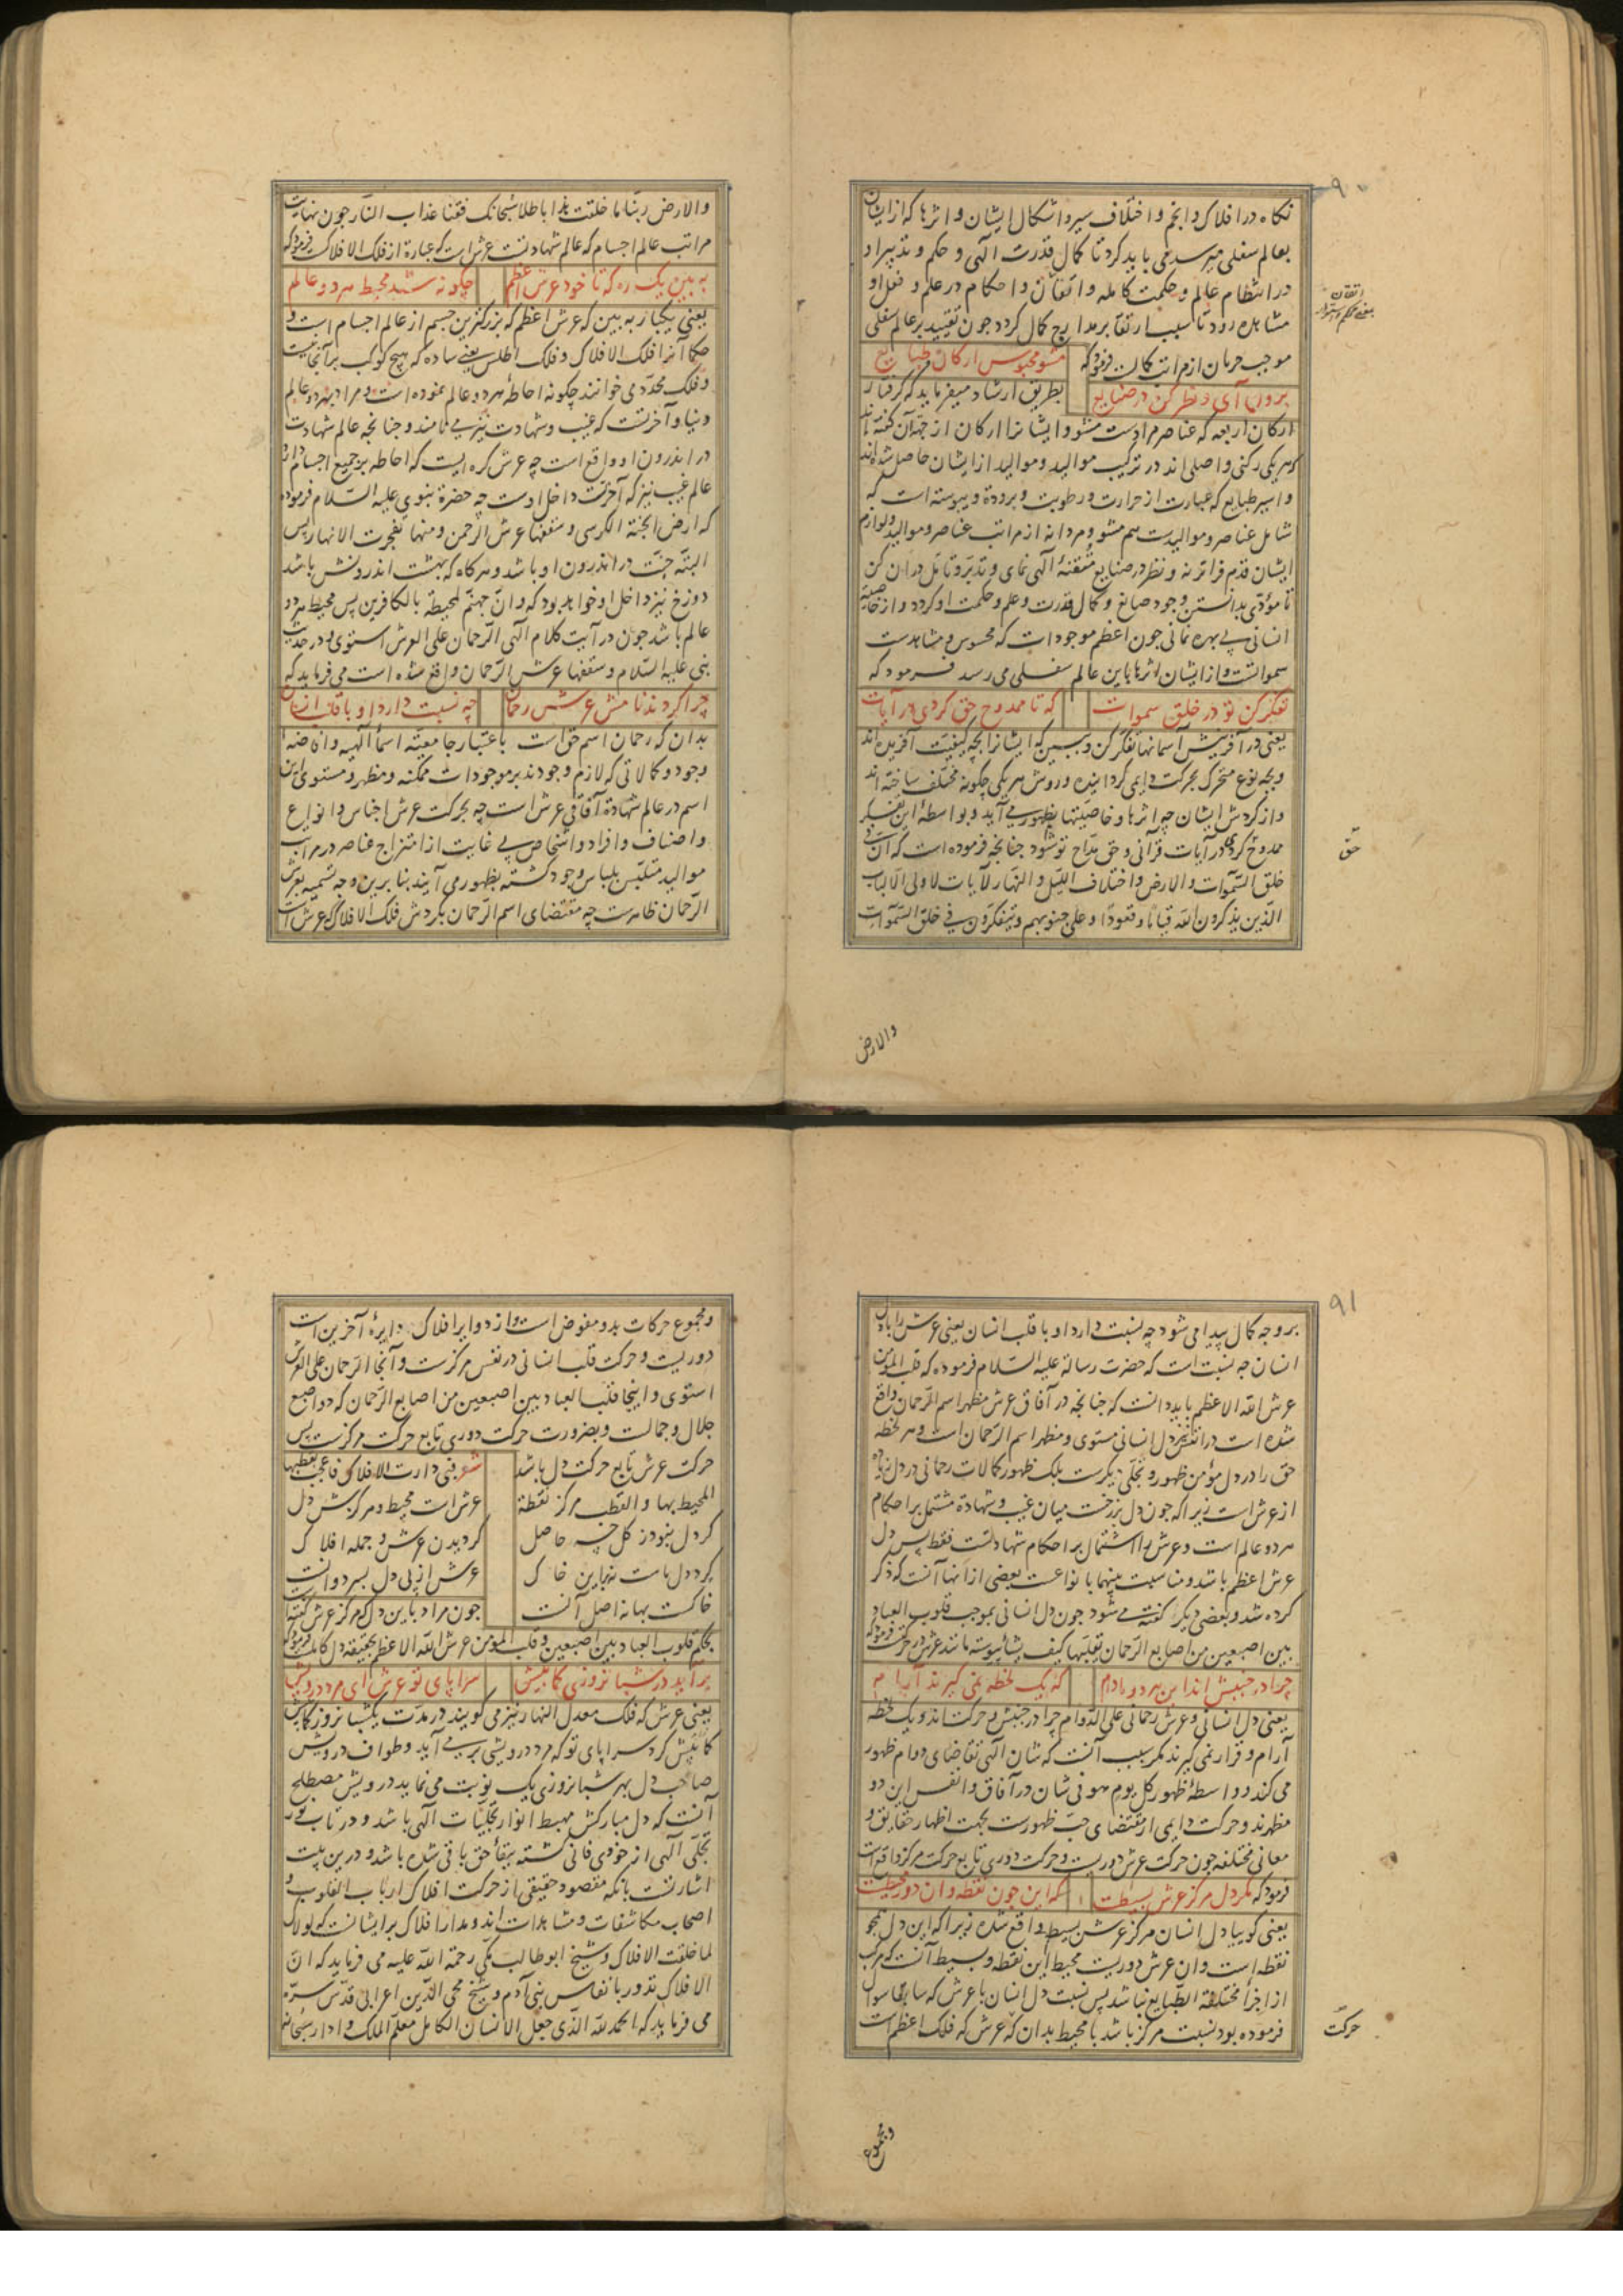 ۹۰
نکاه در افلاک و انجم و اختلاف سیر و اشکال ایشان و اثرها که از ایشان
بعالم سفلی میرسد می باید کرد تا کمال قدرت الهی و حکم و تدبیر او
در انتظام عالم و حکمت کامله و اتقان و احکام در علم و فعل او
مشاهده رود تا سبب ارتقا بر مدارج کمال کردد چون تقیید بر عالم سفلی
موجب حرمان ازمراتب کمالات فرمود که مشو محبوس ارکان و طبایع
برون آی و نظر کن در صنایع بطریق ارشاد میفرماید که کرفتار
ارکان اربعه که عناصر مراد است مشو و ایشانرا ارکان از جهة آن کفته اند
که هر یکی رکنی و اصلی اند در ترکیب موالید و موالید از ایشان حاصل شده اند
و اسیر طبایع که عبارت از حرارت و رطوبت و برودة و یبوسته است که
شامل عناصر و موالیدست هم مشو و مردانه از مراتب عناصر و موالید و لوازم
ایشان قدم فراتر نه و نظر در صنایع متقنهٔ الهی نمای و تدبر و تامل در آن کن
تا مؤدی بدانستن وجود صانع و کمال قدرت و علم و حکمت او کردد و از خاصیة
انسانی بی بهره نمانی چون اعظم موجودات که محسوس و مشاهدست
سمواتست و از ایشان اثرها باین عالم سفلی می رسد فرمود که
تفکر کن تو در خلق سموات که تا ممدوح حق کردی در آیات
یعنی در آفرینش آسمانها تفکر کن و ببین که ایشانرا بچه کیفیت آفریده اند
و بچه نوع متحرک بحرکت دایمی کردانیده و روش هر یکی چکونه مختلف ساخته اند
و از کردش ایشان چه اثرها و خاصیتها بظهور می آید و بواسطهٔ این تفکر
ممدوح کردی در آیات قرآنی و حق مداح تو شود چنانچه فرموده است که ان فی
خلق السموات والارض واختلاف اللیل والنهار لآیات لاولی الالباب
الذین یذکرون الله قیاما وقعودا وعلی جنوبهم ویتفکرون فی خلق السموات
اتقان
حق
والارض
والارض ربنا ما خلقت هذا باطلا سبحانک فقنا عذاب النار چون نهایت
مراتب عالم اجسام که عالم شهادتست عرش است که عبارة از فلک الافلاکست فرمود که
به بین یک ره که تا خود عرش اعظم چکونه شد محیط هر دو عالم
یعنی یکبار به بین که عرش اعظم که بزرکترین جسم از عالم اجسام است و
حکما آنرا فلک الافلاک و فلک اطلس یعنی ساده که هیچ کوکب بر آنجا نیست
و فلک محدد می خوانند چکونه احاطهٔ هر دو عالم نموده است و مراد بهر دو عالم
دنیا و آخرتست که غیب و شهادت نیز می نامند و چنانچه عالم شهادت
در اندرون او واقع است چه عرش کره ایست که احاطه بر جمیع اجسام دارد
عالم غیب نیز که آخرتست داخل اوست چه حضرة نبوی علیه السلام فرموده
که ارض الجنة الکرسی و سقفها عرش الرحمن و منها تفجرت الانهار پس
البته جنت در اندرون او باشد و هر کاه که بهشت اندرونش باشد
دوزخ نیز داخل او خواهد بود که وان جهنم لمحیطة بالکافرین پس محیط هر دو
عالم باشد چون در آیت کلام الهی الرحمان علی العرش استوی و در حدیث
نبی علیه السلام و سقفها عرش الرحمان واقع شده است می فرماید که
چرا کردند نامش عرش رحمان چه نسبت دارد او با قلب انسان
بدان که رحمان اسم حق است باعتبار جامعیتهٔ اسماء الهیه و افاضهٔ
وجود و کمالاتی که لازم وجودند بر موجودات ممکنه و مظهر و مستوی این
اسم در عالم شهادة آفاقی عرش است چه بحرکت عرش اجناس و انواع
و اصناف و افراد و اشخاص بی غایت از امتزاج عناصر در مراتب
موالید متلبس بلباس وجود کشته بظهور می آیند بنا برین وجه تسمیه بعرش
الرحمان ظاهرست چه مقتضای اسم الرحمان بکردش فلک الافلاک که عرش است
۹۱
بر وجه کمال پیدا می شود چه نسبت دارد او با قلب انسان یعنی عرش را با دل
انسان چه نسبت است که حضرت رسالة علیه السلام فرموده که قلب المؤمن
عرش الله الاعظم باید دانست که چنانچه در آفاق عرش مظهر اسم الرحمان واقع
شده است در انفس دل انسانی مستوی و مظهر اسم الرحمان است و هر لحظه
حق را در دل مؤمن ظهور و تجلی دیکرست بلک ظهور کمالات رحمانی در دل زیاده
از عرش است زیرا که چون دل برزخست میان غیب و شهادة مشتمل بر احکام
هر دو عالم است و عرش را اشتمال بر احکام شهادتست فقط پس دل
عرش اعظم باشد و مناسبت بینهما بانواعست بعضی ازانها آنست که ذکر
کرده شد و بعضی دیکر کفته می شود چون دل انسانی بموجب قلوب العباد
بین اصبعین من اصابع الرحمان یقلبها کیف یشا پیوسته مانند عرش در حرکتست فرمود که
چرا در جنبش اند این هر دو مادام که یک لحظه نمی کیرند آرام
یعنی دل انسانی و عرش رحمانی علی الدوام چرا در جنبش و حرکت اند و یک لحظه
آرام و قرار نمی کیرند مکر سبب آنست که شان الهی تقاضای دوام ظهور
می کند و واسطهٔ ظهور کل یوم هو فی شان در آفاق و انفس این دو
مظهرند و حرکت دایمی از مقتضای حب ظهورست بجهت اظهار حقایق و
معانی مختلفه چون حرکت عرش دوریست و حرکت دوری تابع حرکت مرکز واقع است
فرمود که مکر دل مرکز عرش بسیطست که این چون نقطه و ان دور محیطست
یعنی کوییا دل انسان مرکز عرش بسیط واقع شده زیرا که این دل همچو
نقطه است و ان عرش دوریست محیط این نقطه و بسیط آنست که مرکب
از اجزاء مختلفة الطبایع نباشد پس نسبت دل انسان با عرش که سابقا سوال
فرموده بود نسبت مرکز باشد با محیط بدان که عرش که فلک اعظم است
حرکت
ومجموع
و مجموع حرکات بدو مفوض است و از دوایر افلاک دایرهٔ آخرین است
دوریست و حرکت قلب انسانی در نفس مرکزست و آنجا الرحمان علی العرش
استوی و اینجا قلب العباد بین اصبعین من اصابع الرحمان که دو اصبع
جلال و جمالست و بضرورت حرکت دوری تابع حرکت مرکزست پس
حرکت عرش تابع حرکت دل باشد شعر فبی دارت الافلاک فاعجب لقطبها
المحیط بها و القطب مرکز نقطة عرش است محیط و مرکزش دل
کر دل نبود ز کل چه حاصل کردیدن عرش و جمله افلاک
کرد دل ماست نه باین خاک عرش از پی دل بسر دوانست
خاکست بهانه اصل آنست چون مراد باین دل که مرکز عرش کفته است
بحکم قلوب العباد بین اصبعین و قلب المؤمن عرش الله الاعظم بحقیقة دل کاملست فرمود که
برآید در شبانروزی کمابیش سراپای تو عرش ای مرد درویش
یعنی عرش که فلک معدل النهار نیز می کویند در مدت یکشبانروز کمابیش
کمابیش کرد سراپای تو که مرد درویشی برمی آید و طواف درویش
صاحب دل بهر شبانروزی یک نوبت می نماید درویش مصطلح
آنست که دل مبارکش مهبط انوار تجلیات الهی باشد و در تاب نور
تجلی الهی از خودی فانی کشته ببقاء حق باقی شده باشد و درین بیت
اشارتست بانکه مقصود حقیقی از حرکت افلاک ارباب القلوب و
اصحاب مکاشفات و مشاهدات اند و مدار افلاک بر ایشانست که لولاک
لما خلقت الافلاک و شیخ ابو طالب مکی رحمة الله علیه می فرماید که ان
الافلاک تدور بانفاس بنی آدم و شیخ محی الدین اعرابی قدس سره
می فرماید که الحمد لله الذی جعل الانسان الکامل معلم الملک و ادار سبحانه